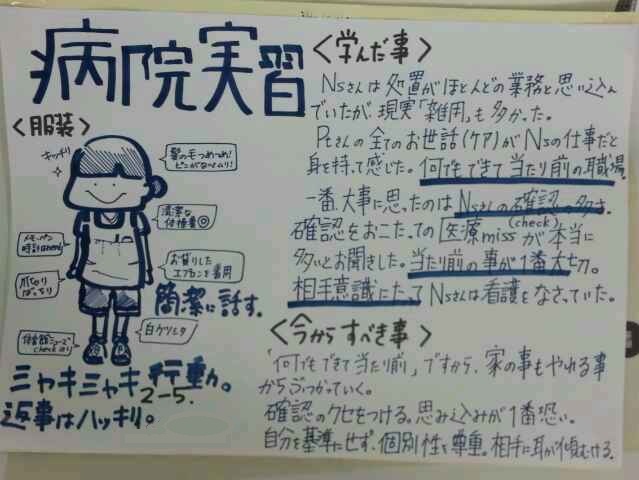 病院実習
<服装>
キッチリ
髪の毛つめつめ!
ピンがなべムリ!
清潔な
体操着◎
メモ、ペン
時計はhemi
お貸りした
エプロンを着用
爪切り
ばっちり
簡潔に話す。
体育館シューズ
checkあり
白クツシタ
シャキシャキ行動。
2-5.
返事はハッキリ。
<学んだ事>
Nsさんは処置がほとんどの業務と思い込ん
でいたが、現実「雑用」も多かった。
Ptさんの全てのお世話(ケア)がNsの仕事だと
身を持って感じた。何でもできて当たり前の職場。
一番、大事に思ったのはNsさんの確認の多さ。
確認をおこたっての医療miss(check)が本当に
多いとお聞きした。当たり前の事が1番大切。
相手意識にたってNsさんは看護をなさっていた。
<今からすべき事>
「何でもできて当たり前」ですから、家の事もやれる事
からぶつかっていく。
確認のクセをつける。思い込みが1番恐い。
自分を基準にせず、個別性を尊重。相手に耳を傾むける。